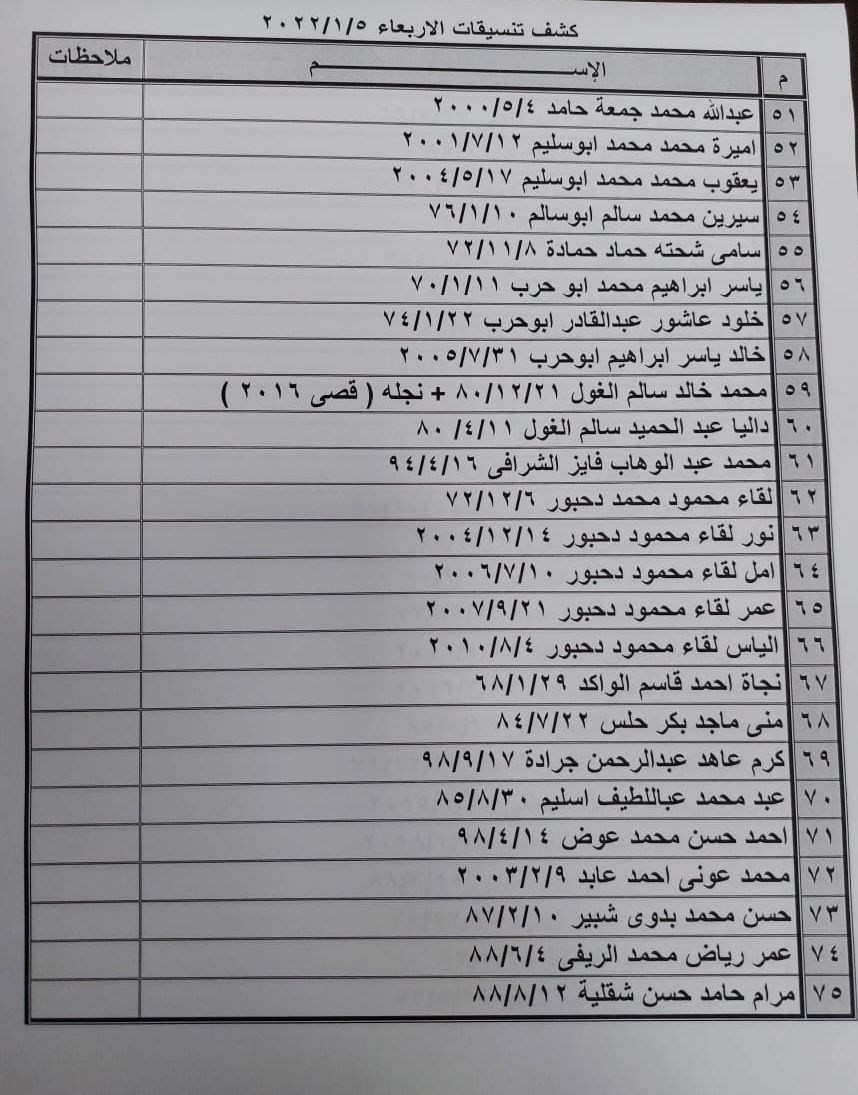 كشف تنسيقات الاربعاء ٢٠٢٢/١/٥
م الإســــــــم ملاحظات
٥١ عبدالله محمد جمعة حامد ٢٠٠٠/٥/٤
٥٢ اميرة محمد محمد ابوسليم ٢٠٠١/٧/١٢
٥٣ يعقوب محمد محمد ابوسليم ٢٠٠٤/٥/١٧
٥٤ سيرين محمد سالم ابوسالم ٧٦/١/١٠
٥٥ سامى شحته حماد حمادة ٧٢/١١/٨
٥٦ ياسر ابراهيم محمد ابو حرب ٧٠/١/١١
٥٧ خلود عاشور عبدالقادر ابوحرب ٧٤/١/٢٢
٥٨ خالد ياسر ابراهيم ابوحرب ٢٠٠٥/٧/٣١
٥٩ محمد خالد سالم الغول ٨٠/١٢/٢١ + نجله ( قصى ٢٠١٦ )
٦٠ داليا عبد الحميد سالم الغول ٨٠/٤/١١
٦١ محمد عبد الوهاب فايز الشرافى ٩٤/٤/١٦
٦٢ لقاء محمود محمد دحبور ٧٢/١٢/٦
٦٣ نور لقاء محمود دحبور ٢٠٠٤/١٢/١٤
٦٤ امل لقاء محمود دحبور ٢٠٠٦/٧/١٠
٦٥ عمر لقاء محمود دحبور ٢٠٠٧/٩/٢١
٦٦ الياس لقاء محمود دحبور ٢٠١٠/٨/٤
٦٧ نجاة احمد قاسم الواكد ٦٨/١/٢٩
٦٨ منى ماجد بكر حلس ٨٤/٧/٢٢
٦٩ كرم عاهد عبدالرحمن جرادة ٩٨/٩/١٧
٧٠ عبد محمد عباللطيف اسليم ٨٥/٨/٣٠
٧١ احمد حسن محمد عوض ٩٨/٤/١٤
٧٢ محمد عونى احمد عابد ٢٠٠٣/٢/٩
٧٣ حسن محمد بدوى شبير ٨٧/٢/١٠
٧٤ عمر رياض محمد الريفى ٨٨/٦/٤
٧٥ مرام حامد حسن شقلية ٨٨/٨/١٢